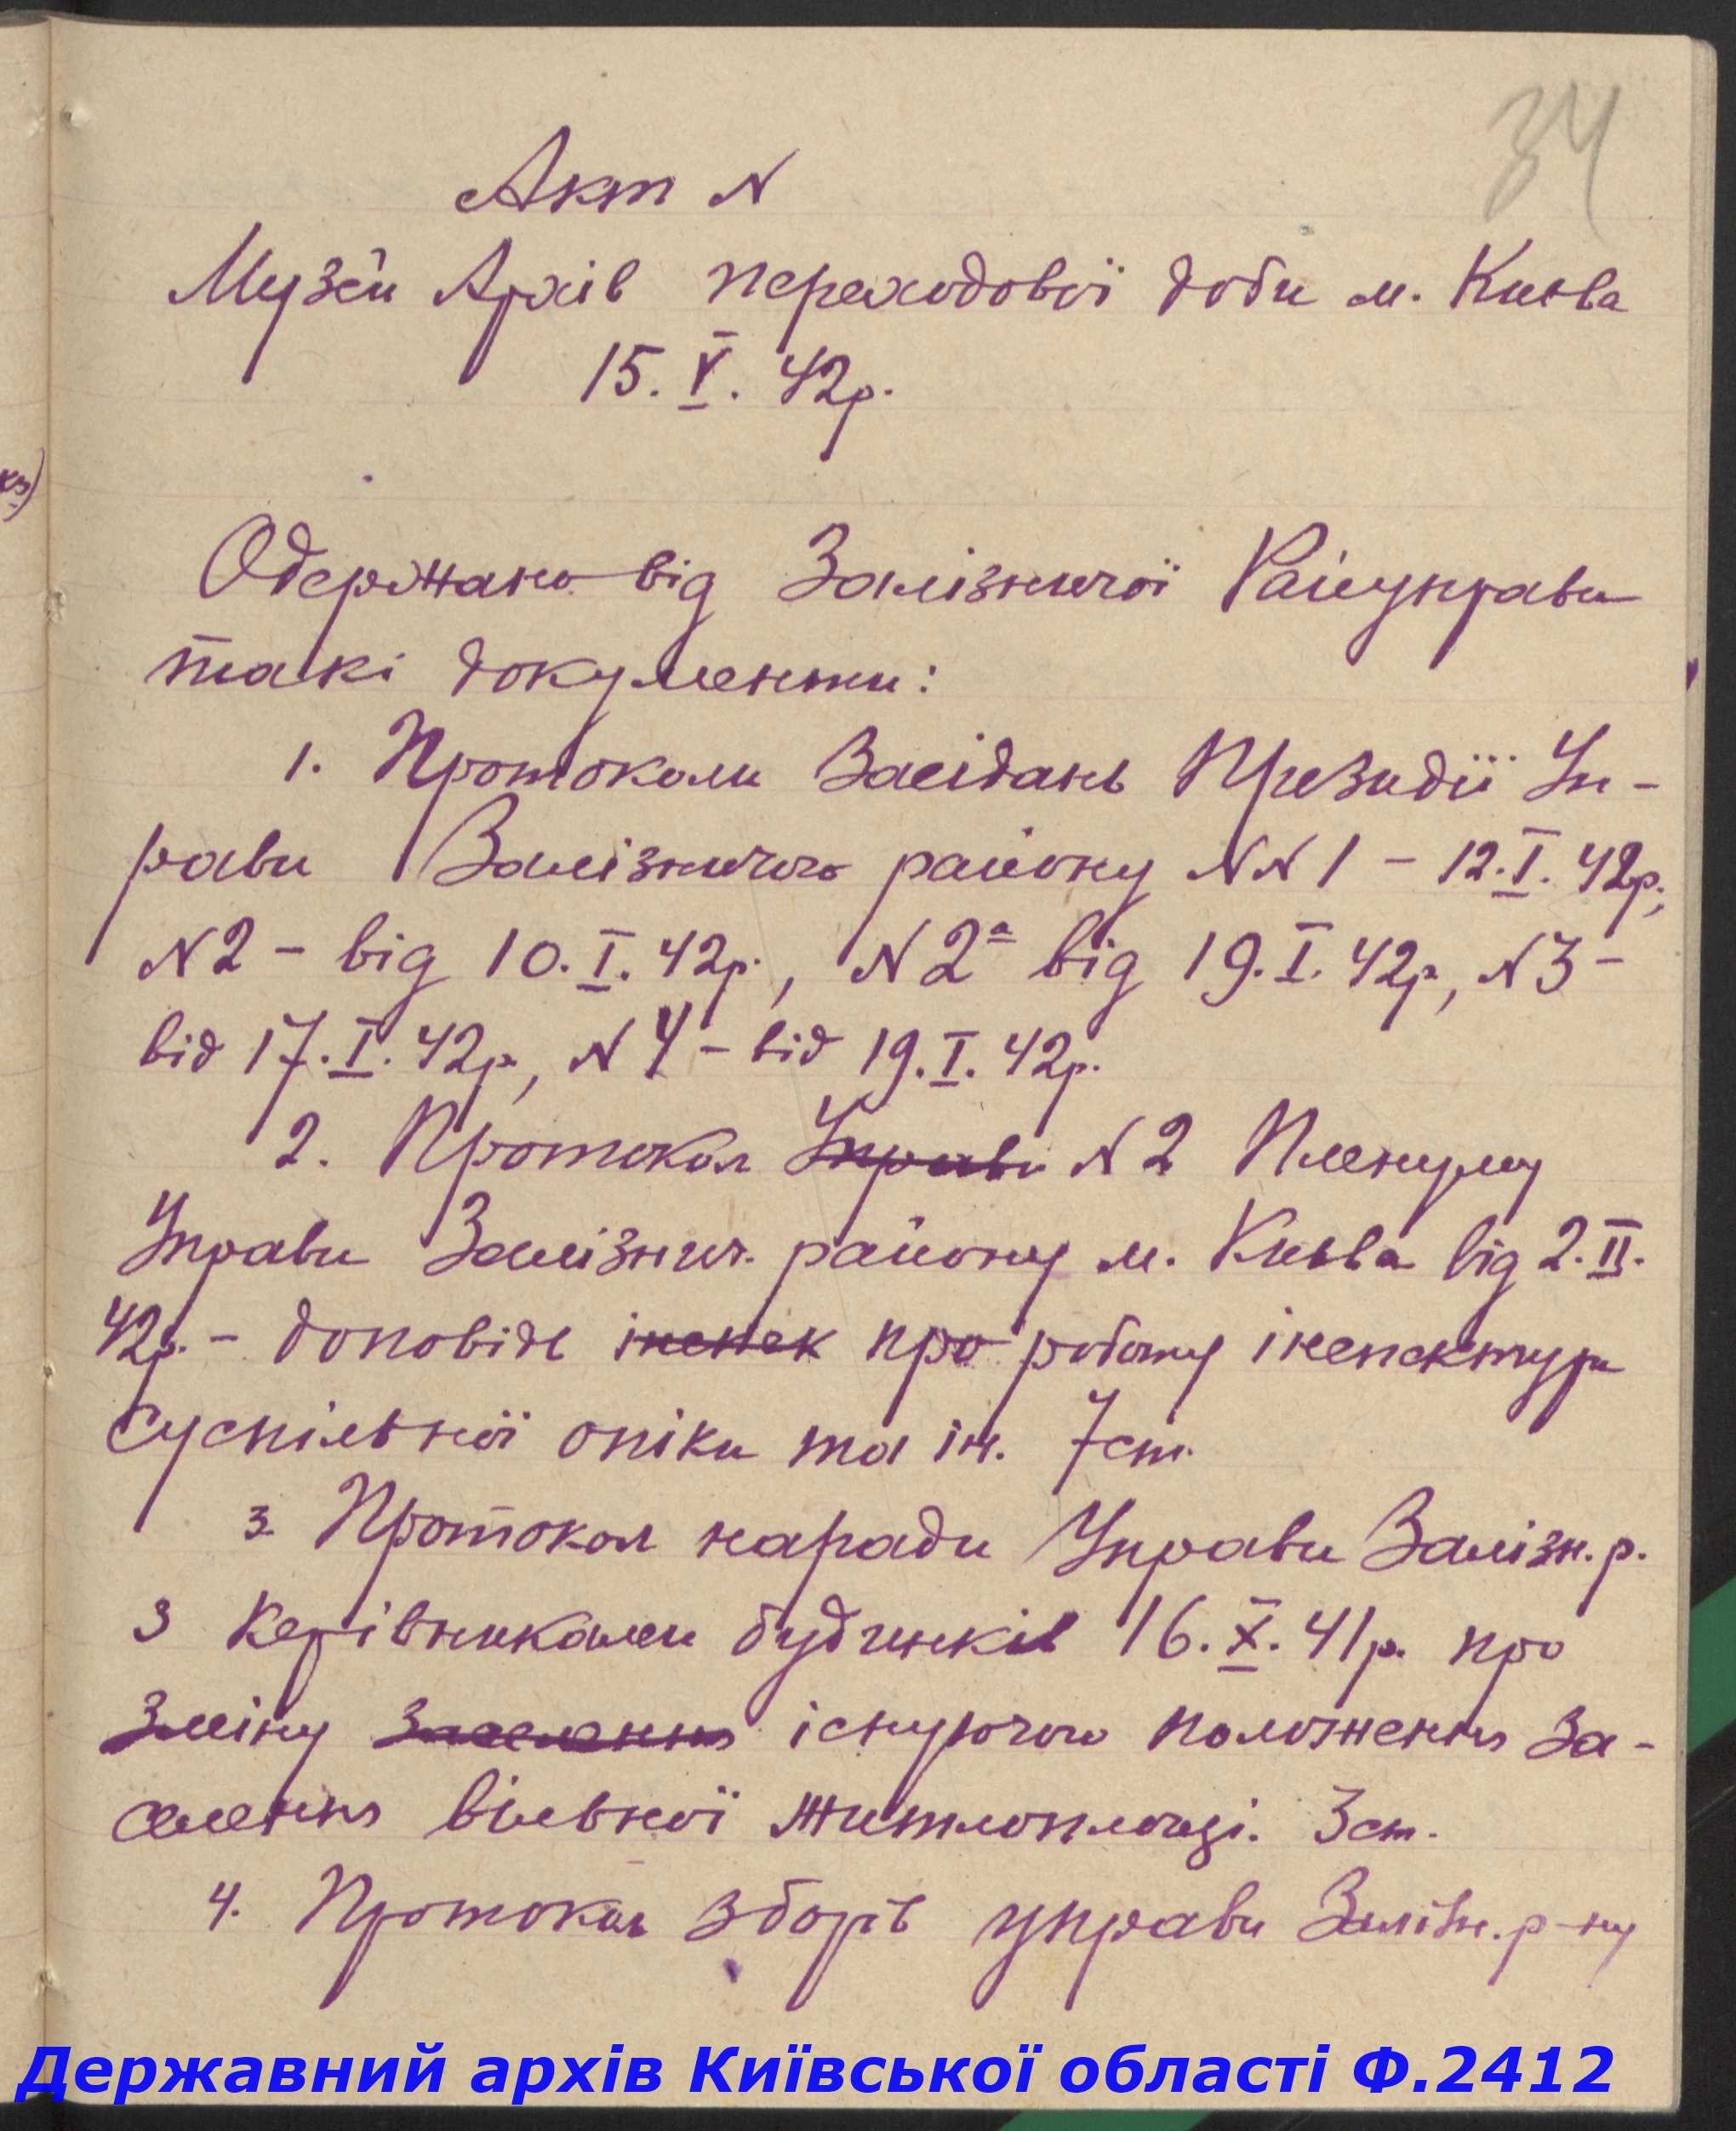 34
Акт N
Музей Архів переходової доби м. Києва
15. V. 42р.
Одержано від Залізничої Райуправи
такі документи:
1. Протоколи Засідань Президії Уп-
рави Залізничого району NN 1 - 12. I. 42р;
N2 - від 10. I. 42р., N2а від 19. I. 42р, N3 -
від 17. I. 42р, N4 - від 19. I. 42р.
2. Протокол Управи N2 Пленуму
Управи Залізнич. району м. Києва від 2. II.
42р. - доповідь інспек про роботу інспектури
суспільної опіки та ін. 7ст.
3. Протокол наради Управи Залізн. р.
з керівниками будинків 16. X. 41р. про
зміну заселення існуючого положення за-
селення вільної житлоплощі. 3ст.
4. Протокол зборів управи Залізн. р-ну
Державний архів Київської області Ф.2412